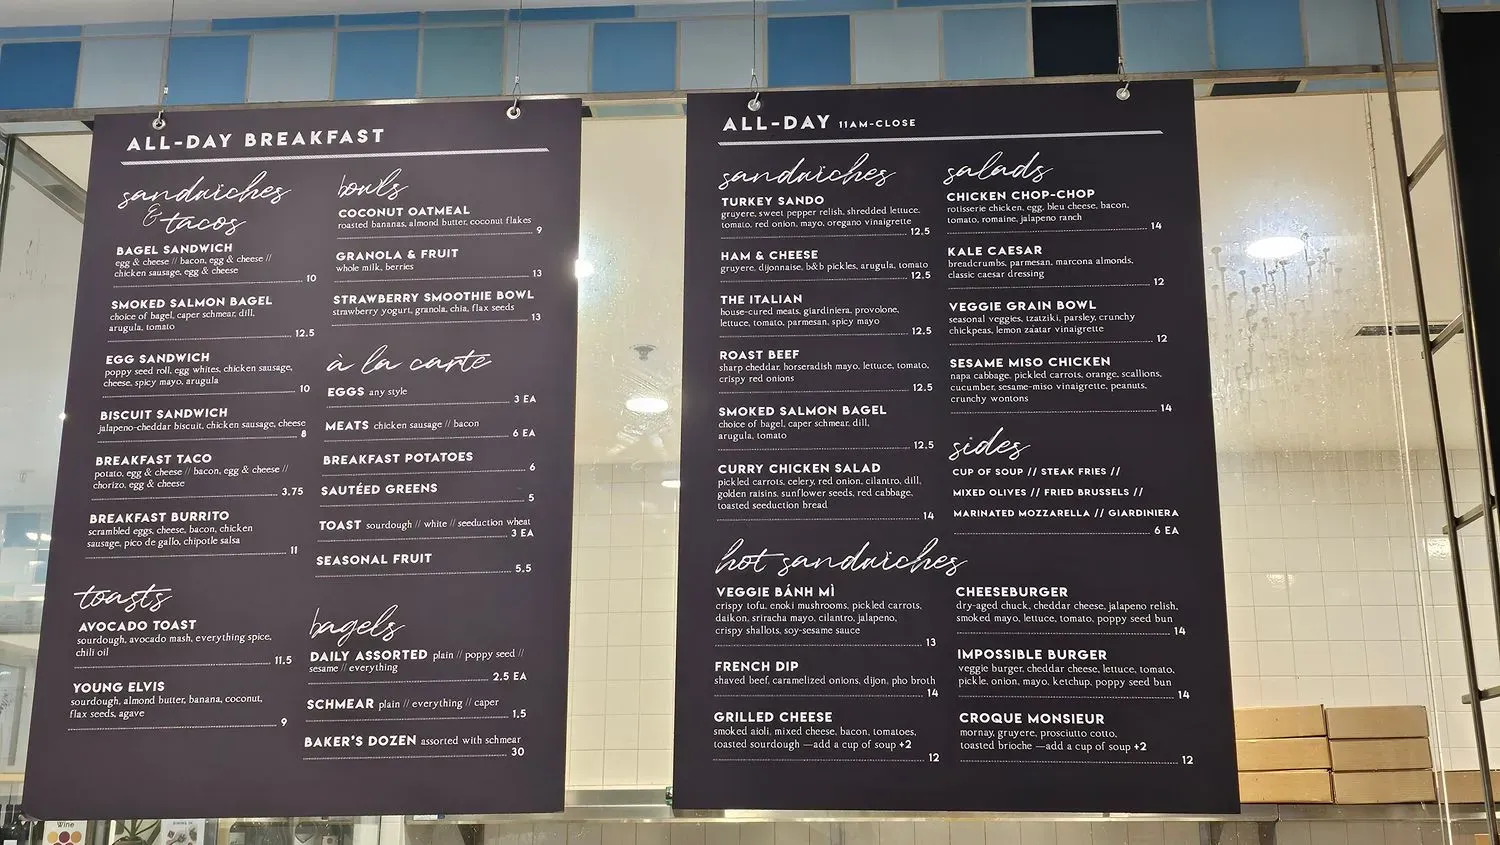 ALL-DAY BREAKFAST
sandwiches
& tacos
BAGEL SANDWICH
egg & cheese // bacon, egg & cheese //
chicken sausage, egg & cheese
10
SMOKED SALMON BAGEL
choice of bagel, caper schmear, dill,
arugula, tomato
12.5
EGG SANDWICH
poppy seed roll, egg whites, chicken sausage,
cheese, spicy mayo, arugula
10
BISCUIT SANDWICH
jalapeno-cheddar biscuit, chicken sausage, cheese
8
BREAKFAST TACO
potato, egg & cheese // bacon, egg & cheese //
chorizo, egg & cheese
3.75
BREAKFAST BURRITO
scrambled eggs, cheese, bacon, chicken
sausage, pico de gallo, chipotle salsa
11
toasts
AVOCADO TOAST
sourdough, avocado mash, everything spice,
chili oil
11.5
YOUNG ELVIS
sourdough, almond butter, banana, coconut,
flax seeds, agave
9
bowls
COCONUT OATMEAL
roasted bananas, almond butter, coconut flakes
9
GRANOLA & FRUIT
whole milk, berries
13
STRAWBERRY SMOOTHIE BOWL
strawberry yogurt, granola, chia, flax seeds
13
à la carte
EGGS any style
3 EA
MEATS chicken sausage // bacon
6 EA
BREAKFAST POTATOES
6
SAUTÉED GREENS
5
TOAST sourdough // white // seeduction wheat
3 EA
SEASONAL FRUIT
5.5
bagels
DAILY ASSORTED plain // poppy seed //
sesame // everything
2.5 EA
SCHMEAR plain // everything // caper
1.5
BAKER'S DOZEN assorted with schmear
30
ALL-DAY 11AM-CLOSE
sandwiches
TURKEY SANDO
gruyere, sweet pepper relish, shredded lettuce,
tomato, red onion, mayo, oregano vinaigrette
12.5
HAM & CHEESE
gruyere, dijonnaise, b&b pickles, arugula, tomato
12.5
THE ITALIAN
house-cured meats, giardiniera, provolone,
lettuce, tomato, parmesan, spicy mayo
12.5
ROAST BEEF
sharp cheddar, horseradish mayo, lettuce, tomato,
crispy red onions
12.5
SMOKED SALMON BAGEL
choice of bagel, caper schmear, dill,
arugula, tomato
12.5
CURRY CHICKEN SALAD
pickled carrots, celery, red onion, cilantro, dill,
golden raisins, sunflower seeds, red cabbage,
toasted seeduction bread
14
salads
CHICKEN CHOP-CHOP
rotisserie chicken, egg, bleu cheese, bacon,
tomato, romaine, jalapeno ranch
14
KALE CAESAR
breadcrumbs, parmesan, marcona almonds,
classic caesar dressing
12
VEGGIE GRAIN BOWL
seasonal veggies, tzatziki, parsley, crunchy
chickpeas, lemon za'atar vinaigrette
12
SESAME MISO CHICKEN
napa cabbage, pickled carrots, orange, scallions,
cucumber, sesame-miso vinaigrette, peanuts,
crunchy wontons
14
sides
CUP OF SOUP // STEAK FRIES //
MIXED OLIVES // FRIED BRUSSELS //
MARINATED MOZZARELLA // GIARDINIERA
6 EA
hot sandwiches
VEGGIE BÁNH MÌ
crispy tofu, enoki mushrooms, pickled carrots,
daikon, sriracha mayo, cilantro, jalapeno,
crispy shallots, soy-sesame sauce
13
FRENCH DIP
shaved beef, caramelized onions, dijon, pho broth
14
GRILLED CHEESE
smoked aioli, mixed cheese, bacon, tomatoes,
toasted sourdough —add a cup of soup +2
12
CHEESEBURGER
dry-aged chuck, cheddar cheese, jalapeno relish,
smoked mayo, lettuce, tomato, poppy seed bun
14
IMPOSSIBLE BURGER
veggie burger, cheddar cheese, lettuce, tomato,
pickle, onion, mayo, ketchup, poppy seed bun
14
CROQUE MONSIEUR
mornay, gruyere, prosciutto cotto,
toasted brioche —add a cup of soup +2
12
Wine